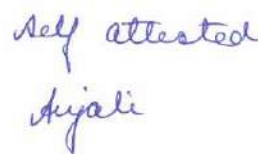 Self attested
Anjali